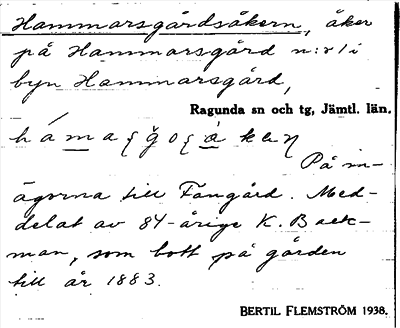 Hammarsgårdsåkern, åker
på Hammarsgård n:r 1 i
byn Hammarsgård,
Ragunda sn och tg, Jämtl. län.
På in-
ägorna till Fångård. Med-
delat av 84-årige K. Back-
man, som bott på gården
till år 1883.
BERTIL FLEMSTRÖM 1938.